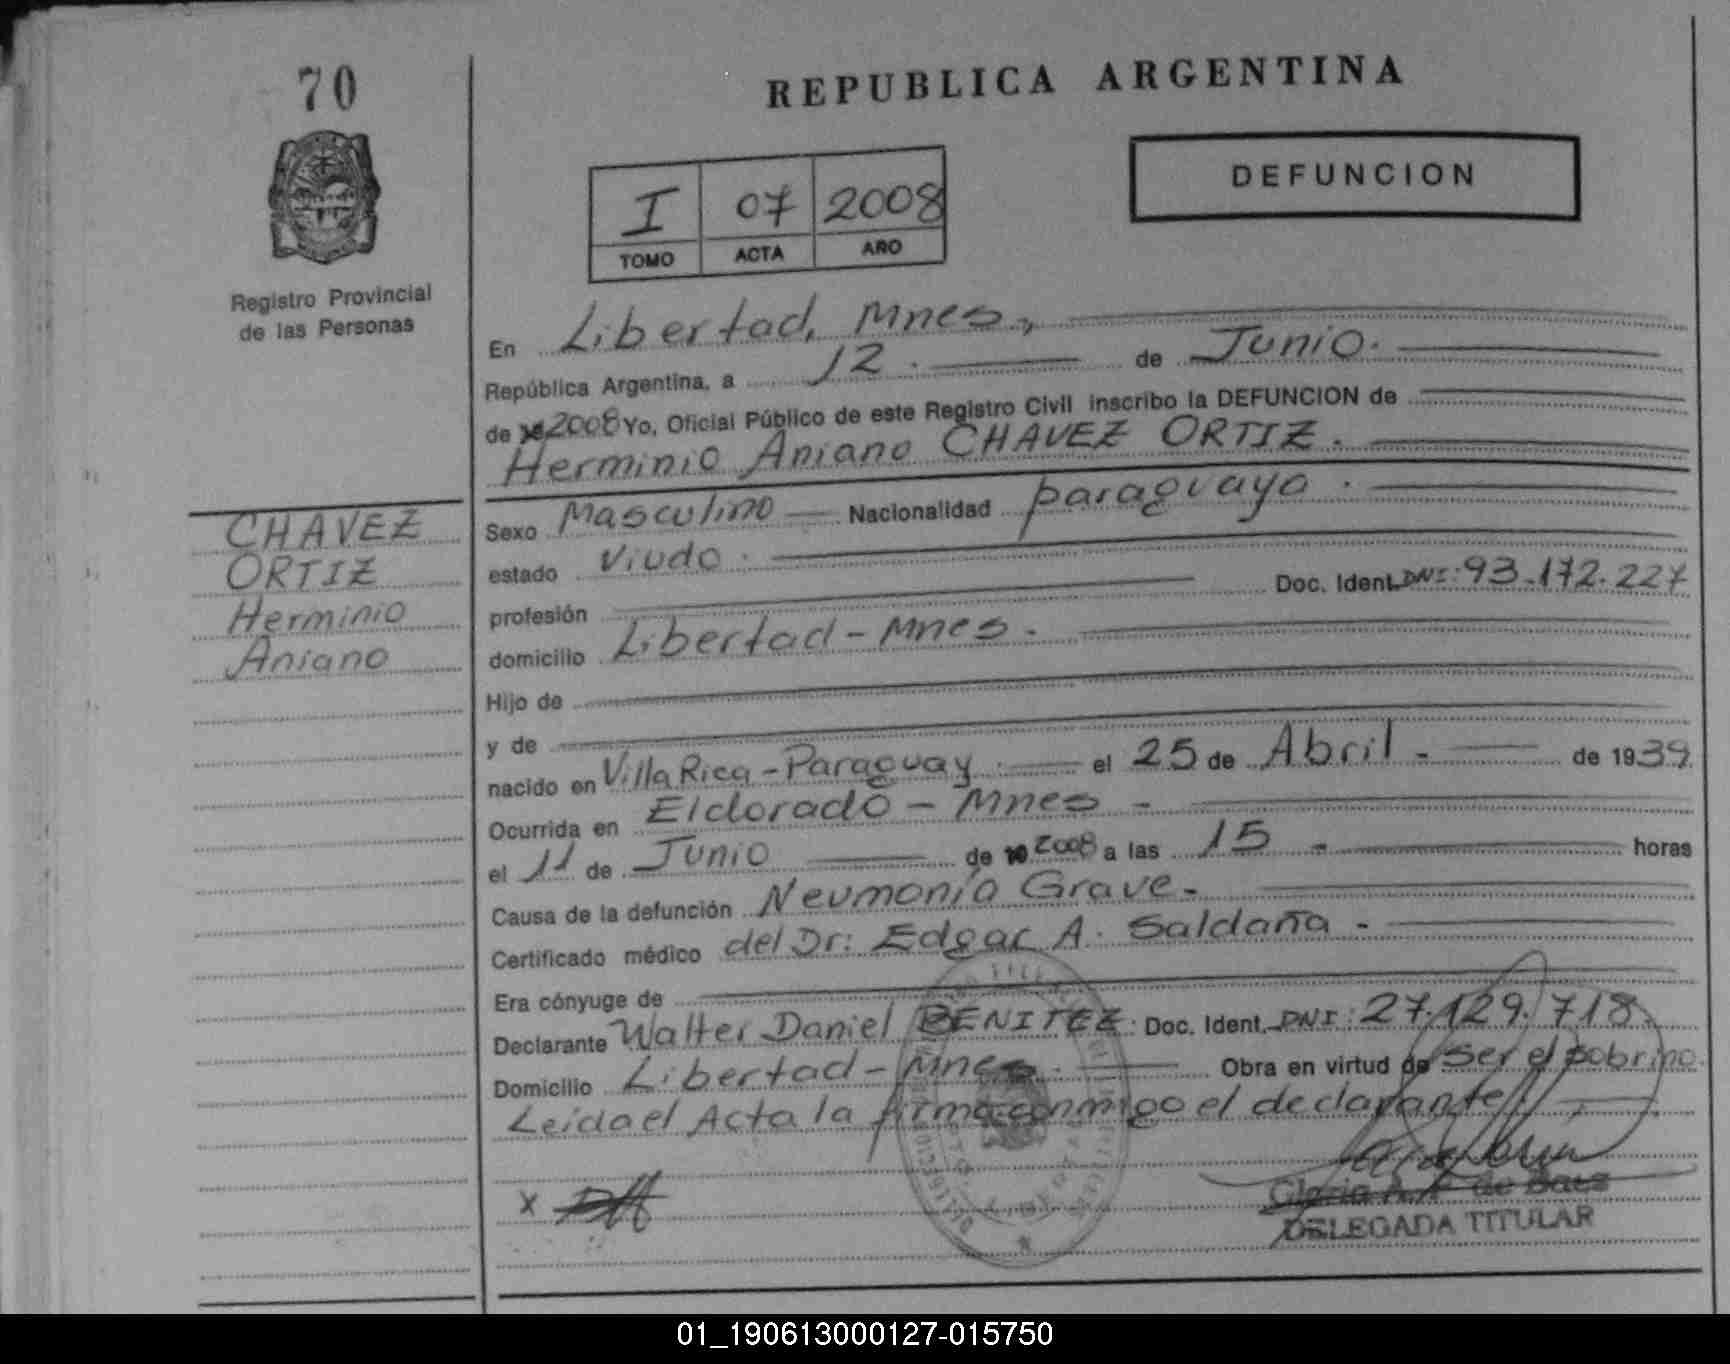 70
REPUBLICA ARGENTINA
DEFUNCION
I 07 2008
TOMO ACTA AÑO
Registro Provincial
de las Personas
CHAVEZ
ORTIZ
Herminio
Aniano
En Libertad, Mnes.,
República Argentina, a 12. de Junio.
de 2008 Yo, Oficial Público de este Registro Civil inscribo la DEFUNCION de
Herminio Aniano CHAVEZ ORTIZ.
Sexo Masculino Nacionalidad paraguaya.
estado Viudo.
profesión Doc. Ident. DNI: 93.172.227
domicilio Libertad - Mnes.
Hijo de
y de
nacido en Villa Rica - Paraguay. el 25 de Abril - de 1939.
Ocurrida en Eldorado - Mnes -
el 11 de Junio de 2008 a las 15 - horas
Causa de la defunción Neumonía Grave -
Certificado médico del Dr: Edgar A. Saldaña -
Era cónyuge de
Declarante Walter Daniel BENITEZ. Doc. Ident. DNI: 27.129.718.
Domicilio Libertad - Mnes. Obra en virtud de ser el sobrino.
Leída el Acta la firma conmigo el declarante
X
de
DELEGADA TITULAR
01_190613000127-015750